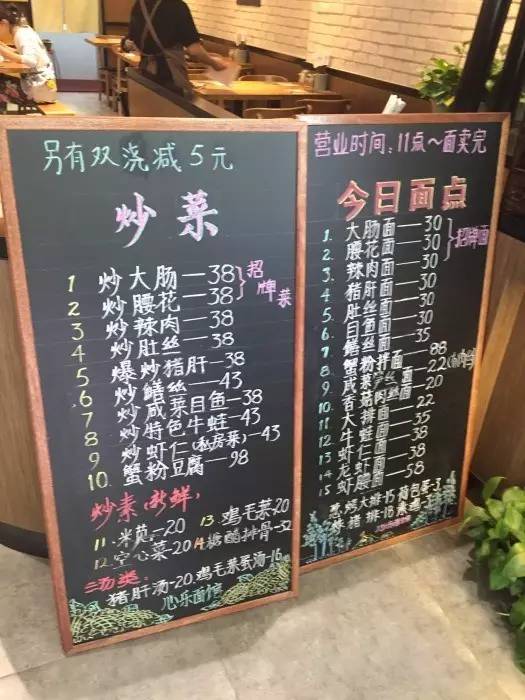 另有双浇减5元
炒菜
1 炒大肠—38
2 炒腰花—38
招牌菜
3 炒辣肉—38
4 炒肚丝—38
5 爆炒猪肝—38
6 炒鳝丝—43
7 炒咸菜目鱼—38
8 炒特色牛蛙—43
9 炒虾仁(私房菜)—43
10 蟹粉豆腐—98
炒素(新鲜)
11 米苋—20 13 鸡毛菜—20
12 空心菜—20 14 糖醋排骨—32
汤类:
猪肝汤—20 鸡毛菜蛋汤—16
心乐面馆
营业时间:11点~面卖完
今日面点
1. 大肠面—30
2. 腰花面—30
招牌面
3. 辣肉面—30
4. 猪肝面—30
5. 肚丝面—30
6. 目鱼面—30
7. 鳝丝面—35
8. 蟹粉拌面—88
9. 咸菜肉丝面—22
10 香菇面—20
11 大排面—22
12 牛蛙面—35
13 虾仁面—38
14 龙虾面—38
15 虾腰面—58
大排—15 荷包蛋—3
炸猪排—18 素鸡—3